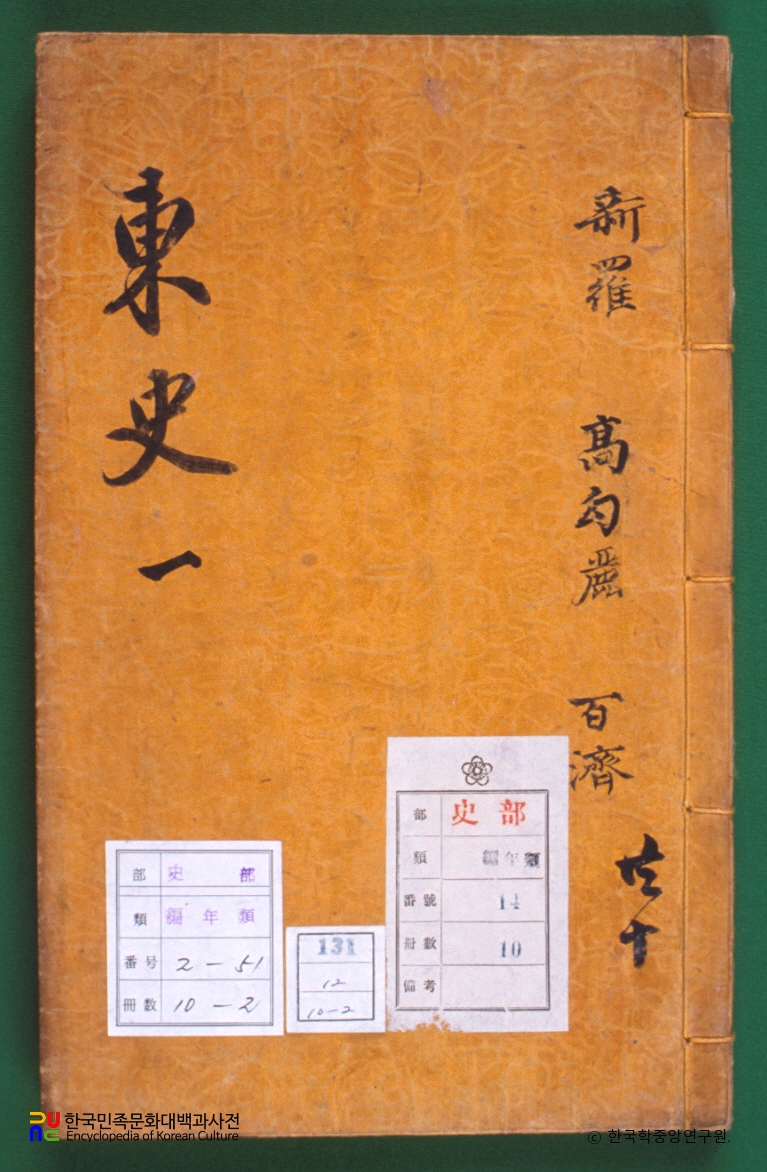 新羅 高勾麗 百濟
共十
東史 一
部 史部
類 編年類
番号 2-51
冊數 10-2
131
12
10-2
部 史部
類 編年類
番號 14
冊數 10
備考
한국민족문화대백과사전
Encyclopedia of Korean Culture
© 한국학중앙연구원.